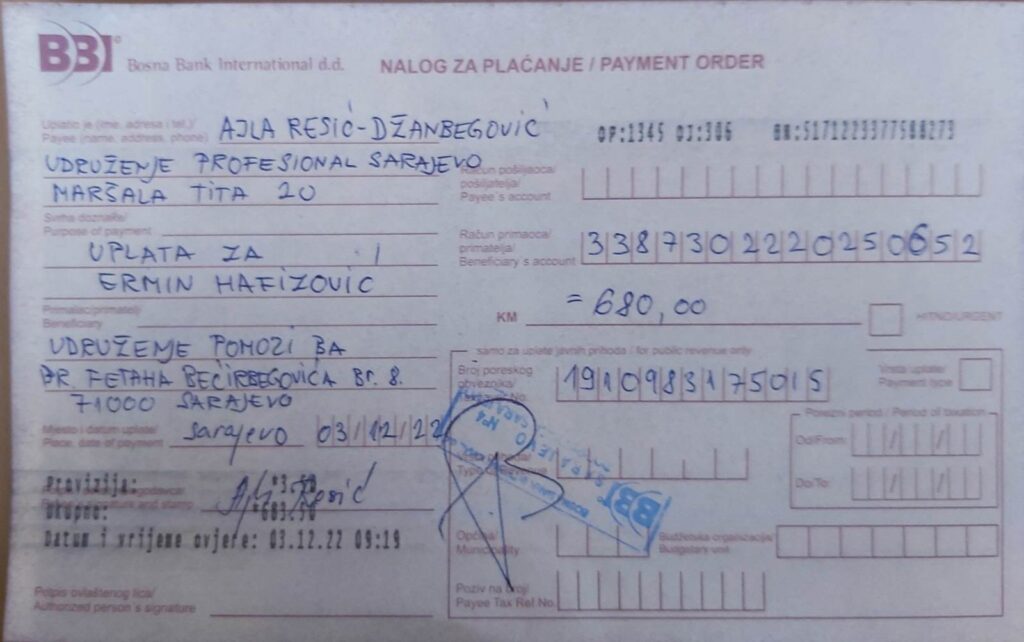 BBI Bosna Bank International d.d.
NALOG ZA PLAĆANJE / PAYMENT ORDER
Uplatio je (ime, adresa i tel.)/
Payee (name, address, phone)
AJLA RESIĆ-DŽANBEGOVIĆ
UDRUŽENJE PROFESIONAL SARAJEVO
MARŠALA TITA 20
OP:1345 OJ:306 BN:5171223377588273
Račun pošiljaoca/
pošiljatelja/
Payee's account
Svrha doznake/
Purpose of payment
UPLATA ZA
ERMIN HAFIZOVIĆ
Račun primaoca/
primatelja/
Beneficiary's account
3387302220250652
KM
=680,00
HITNO/URGENT
Primalac/primatelj
Beneficiary
UDRUŽENJE POMOZI BA
DR. FETAHA BEĆIRBEGOVIĆA Br. 8.
71000 SARAJEVO
Mjesto i datum uplate/
Place, date of payment
Sarajevo 03/12/22
samo za uplate javnih prihoda / for public revenue only
Broj poreskog
obveznika/
1910983175015
Vrsta uplate/
Payment type
Porezni period / Period of taxation
Od/From:
Do/To:
BBI SARAJEVO
Provizija: *3.50
Ukupno: *683.50
Datum i vrijeme ovjere: 03.12.22 09:19
Općina/
Municipality
Budžetska organizacija/
Budgetary unit
Poziv na broj/
Payee Tax Ref No.
Potpis ovlaštenog lica/
Authorized person's signature